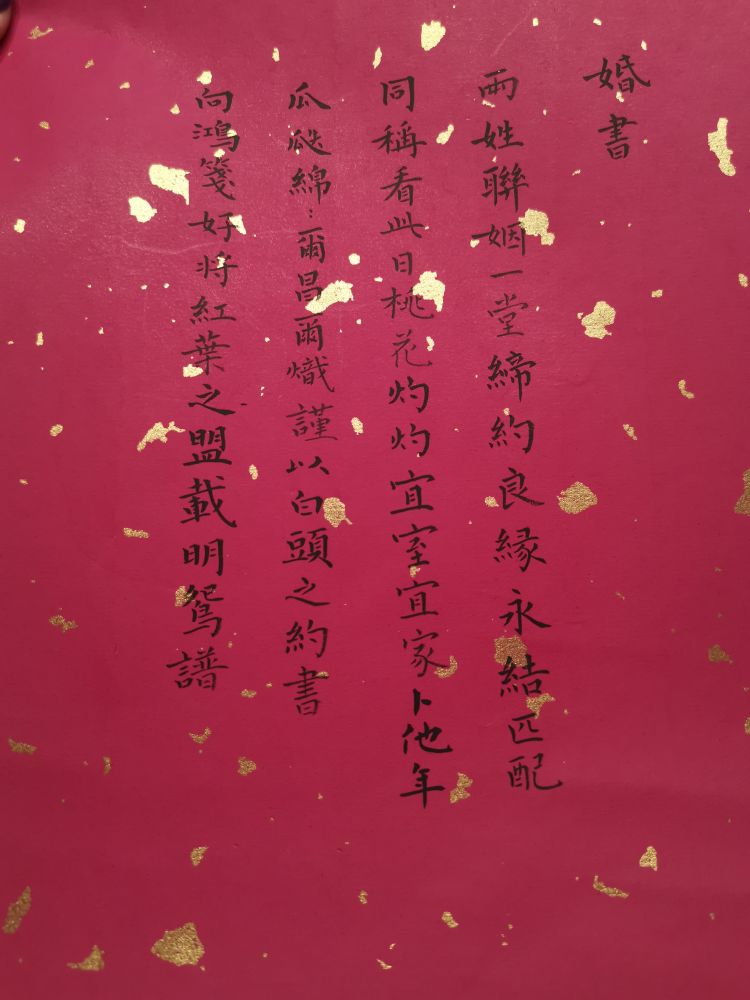 婚書
兩姓聯姻一堂締約良緣永結匹配
同稱看此日桃花灼灼宜室宜家卜他年
瓜瓞綿：爾昌爾熾謹以白頭之約書
向鴻箋好將紅葉之盟載明鴛譜